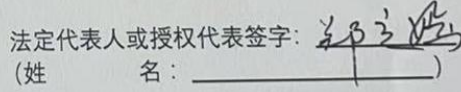 法定代表人或授权代表签字：
(姓 名：)